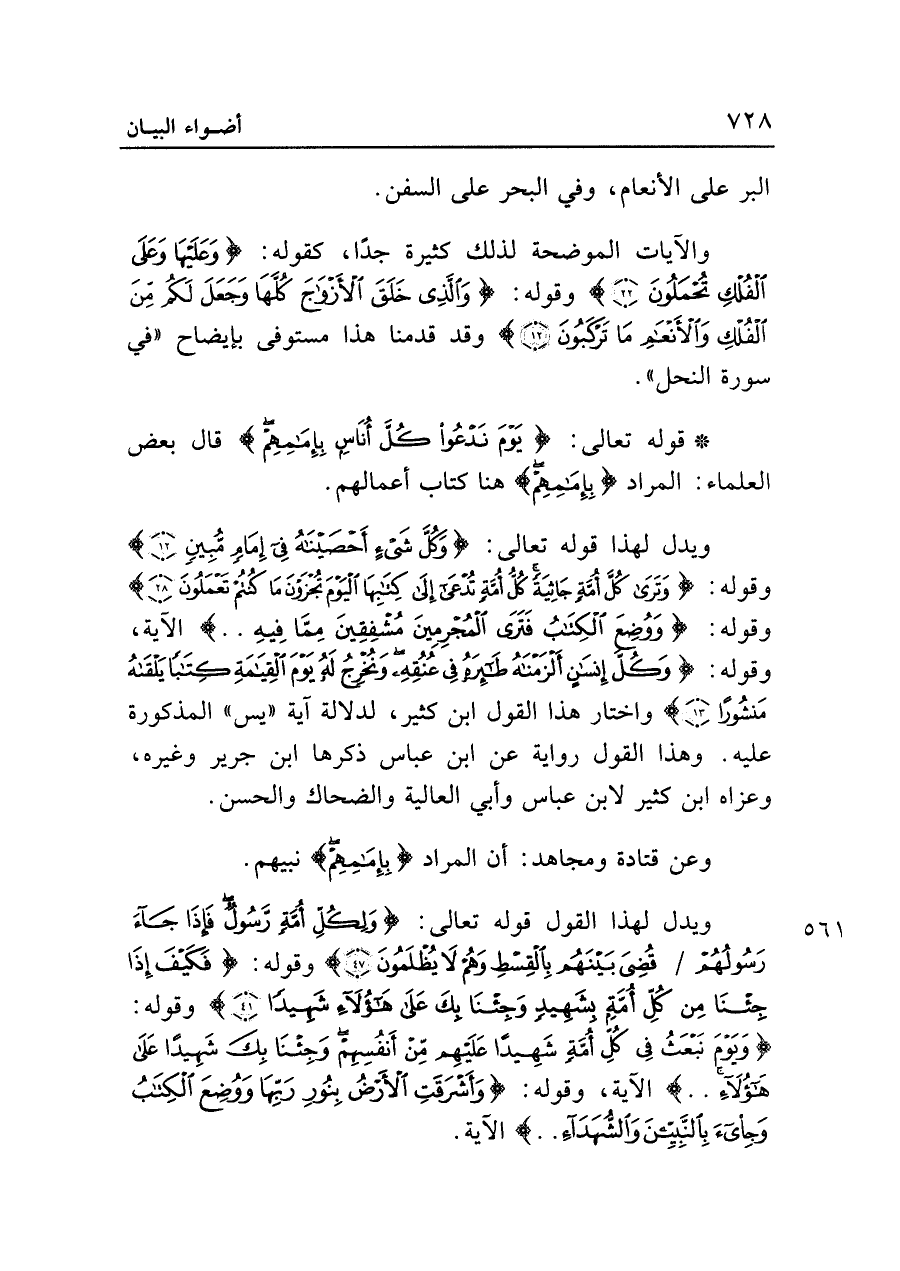 ٧٢٨ أضواء البيان
البر على الأنعام، وفي البحر على السفن.
والآيات الموضحة لذلك كثيرة جدًا، كقوله: ﴿وَعَلَيْهَا وَعَلَى
ٱلْفُلْكِ تُحْمَلُونَ ﴿٢٢﴾﴾ وقوله: ﴿وَٱلَّذِى خَلَقَ ٱلْأَزْوَٰجَ كُلَّهَا وَجَعَلَ لَكُم مِّنَ
ٱلْفُلْكِ وَٱلْأَنْعَٰمِ مَا تَرْكَبُونَ ﴿١٢﴾﴾ وقد قدمنا هذا مستوفى بإيضاح «في
سورة النحل».
* قوله تعالى: ﴿يَوْمَ نَدْعُوا۟ كُلَّ أُنَاسٍۭ بِإِمَٰمِهِمْ ۖ﴾ قال بعض
العلماء: المراد ﴿بِإِمَٰمِهِمْ ۖ﴾ هنا كتاب أعمالهم.
ويدل لهذا قوله تعالى: ﴿وَكُلَّ شَىْءٍ أَحْصَيْنَٰهُ فِىٓ إِمَامٍ مُّبِينٍ ﴿١٢﴾﴾
وقوله: ﴿وَتَرَىٰ كُلَّ أُمَّةٍ جَاثِيَةً ۚ كُلُّ أُمَّةٍ تُدْعَىٰٓ إِلَىٰ كِتَٰبِهَا ٱلْيَوْمَ تُجْزَوْنَ مَا كُنتُمْ تَعْمَلُونَ ﴿٢٨﴾﴾
وقوله: ﴿وَوُضِعَ ٱلْكِتَٰبُ فَتَرَى ٱلْمُجْرِمِينَ مُشْفِقِينَ مِمَّا فِيهِ ..﴾ الآية،
وقوله: ﴿وَكُلَّ إِنسَٰنٍ أَلْزَمْنَٰهُ طَٰٓئِرَهُۥ فِى عُنُقِهِۦ ۖ وَنُخْرِجُ لَهُۥ يَوْمَ ٱلْقِيَٰمَةِ كِتَٰبًا يَلْقَىٰهُ
مَنشُورًا ﴿١٣﴾﴾ واختار هذا القول ابن كثير، لدلالة آية «يس» المذكورة
عليه. وهذا القول رواية عن ابن عباس ذكرها ابن جرير وغيره،
وعزاه ابن كثير لابن عباس وأبي العالية والضحاك والحسن.
وعن قتادة ومجاهد: أن المراد ﴿بِإِمَٰمِهِمْ ۖ﴾ نبيهم.
ويدل لهذا القول قوله تعالى: ﴿وَلِكُلِّ أُمَّةٍ رَّسُولٌ ۖ فَإِذَا جَآءَ ٥٦١
رَسُولُهُمْ / قُضِىَ بَيْنَهُم بِٱلْقِسْطِ وَهُمْ لَا يُظْلَمُونَ ﴿٤٧﴾﴾ وقوله: ﴿فَكَيْفَ إِذَا
جِئْنَا مِن كُلِّ أُمَّةٍۭ بِشَهِيدٍ وَجِئْنَا بِكَ عَلَىٰ هَٰٓؤُلَآءِ شَهِيدًا ﴿٤١﴾﴾ وقوله:
﴿وَيَوْمَ نَبْعَثُ فِى كُلِّ أُمَّةٍ شَهِيدًا عَلَيْهِم مِّنْ أَنفُسِهِمْ ۖ وَجِئْنَا بِكَ شَهِيدًا عَلَىٰ
هَٰٓؤُلَآءِ ۚ ..﴾ الآية، وقوله: ﴿وَأَشْرَقَتِ ٱلْأَرْضُ بِنُورِ رَبِّهَا وَوُضِعَ ٱلْكِتَٰبُ
وَجِا۟ىٓءَ بِٱلنَّبِيِّۦنَ وَٱلشُّهَدَآءِ ..﴾ الآية.